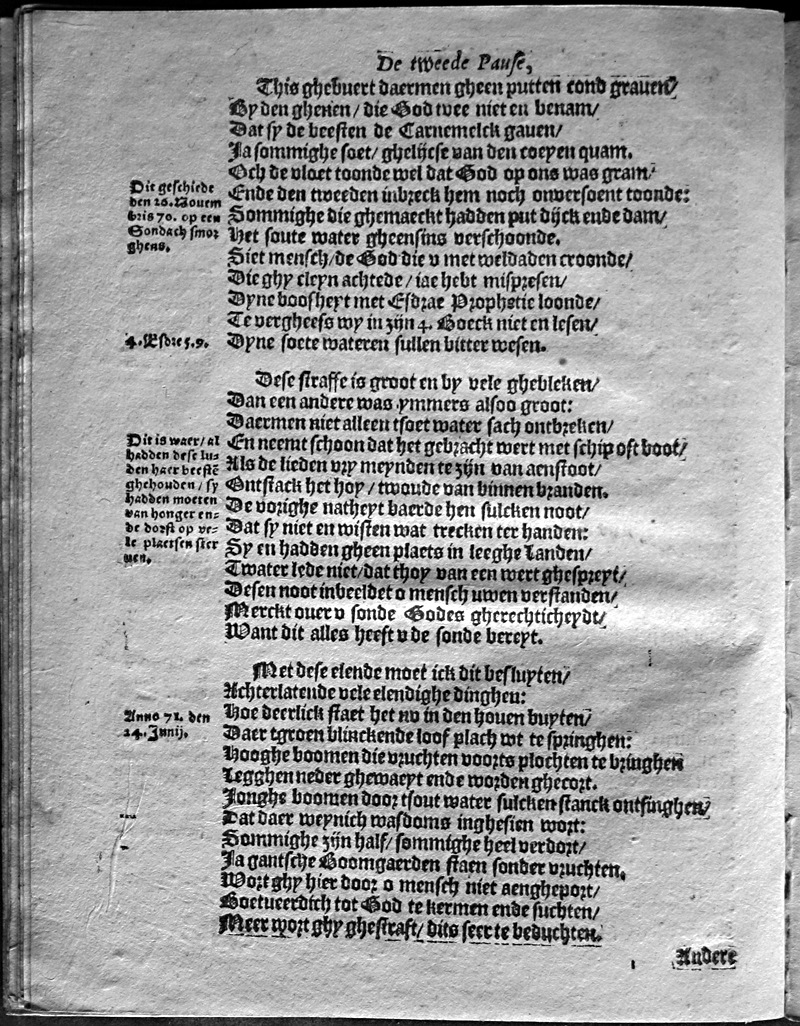 De tweede Pause,
This ghebuert daermen gheen putten cond grauen/
By den ghenen / die God twee niet en benam/
Dat sy de beesten de Carnemelck gauen/
Ja sommighe soet/ ghelijcse van den coeyen quam.
Och de vloet toonde wel dat God op ons was gram/
Die geschiede
den 26. Nouem
bris 70. op een
Sondach smor
ghens.
Ende den tweeden inbreck hem noch onversoent toonde:
Sommighe die ghemaeckt hadden put dijck ende dam/
Het soute water gheensins verschoonde.
Siet mensch/ de God die v met weldaden croonde/
Die ghy cleyn achtede / iae hebt mispresen/
Dyne boosheyt met Esdrae Prophetie loonde/
Te vergheefs wy in zijn 4. Boeck niet en lesen/
4. Esdre 5. 9.
Dyne soete wateren sullen bitter wesen.
Dese straffe is groot en by vele ghebleken/
Dan een andere was ymmers alsoo groot:
Daermen niet alleen tsoet water sach ontbreken/
Dit is waer/ al
hadden dese lu-
den haer beestē
ghehouden / sy
hadden moeten
van honger en-
de dorst op ve-
le plaetsen ster
uen.
En neemt schoon dat het gebracht wert met schip oft boot/
Als de lieden vry meynden te zijn van aenstoot/
Ontstack het hoy / twoude van binnen branden.
De vorighe natheyt baerde hen sulcken noot/
Dat sy niet en wisten wat trecken ter handen:
Sy en hadden gheen plaets in leeghe Landen/
Twater lede niet/ dat thoy van een wert ghespreyt/
Desen noot inbeeldet o mensch uwen verstanden/
Merckt ouer v sonde Godes gherechticheydt/
Want dit alles heeft v de sonde bereyt.
Met dese elende moet ick dit besluyten/
Achterlatende vele elendighe dinghen:
Anno 71. den
24. Junij.
Hoe deerlick staet het nv in den houen buyten/
Daer tgroen blinckende loof plach wt te springhen:
Hooghe boomen die vruchten voorts plochten te bringhen
Legghen neder ghewaeyt ende worden ghecort.
Jonghe boomen door tsout water sulcken stanck ontfinghen/
Dat daer weynich wasdoms inghesien wort:
Sommighe zijn half/ sommighe heel verdort/
Ja gantsche Boomgaerden staen sonder vruchten.
Wort ghy hier door o mensch niet aengheport/
Boetueerdich tot God te kermen ende suchten/
Meer wort ghy ghestraft/ dits seer te beduchten.
Andere